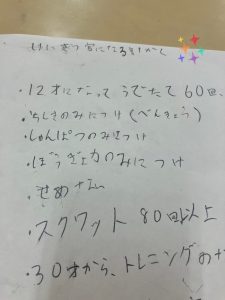 ・12才になって うでたて60回、
・ちしきのみにつけ(べんきょう)
・しゅんぱつのみにつけ
・ぼうぎょ力のみにつけ
・せめ
・スクワット 80回以上
・30才から、トレニングの